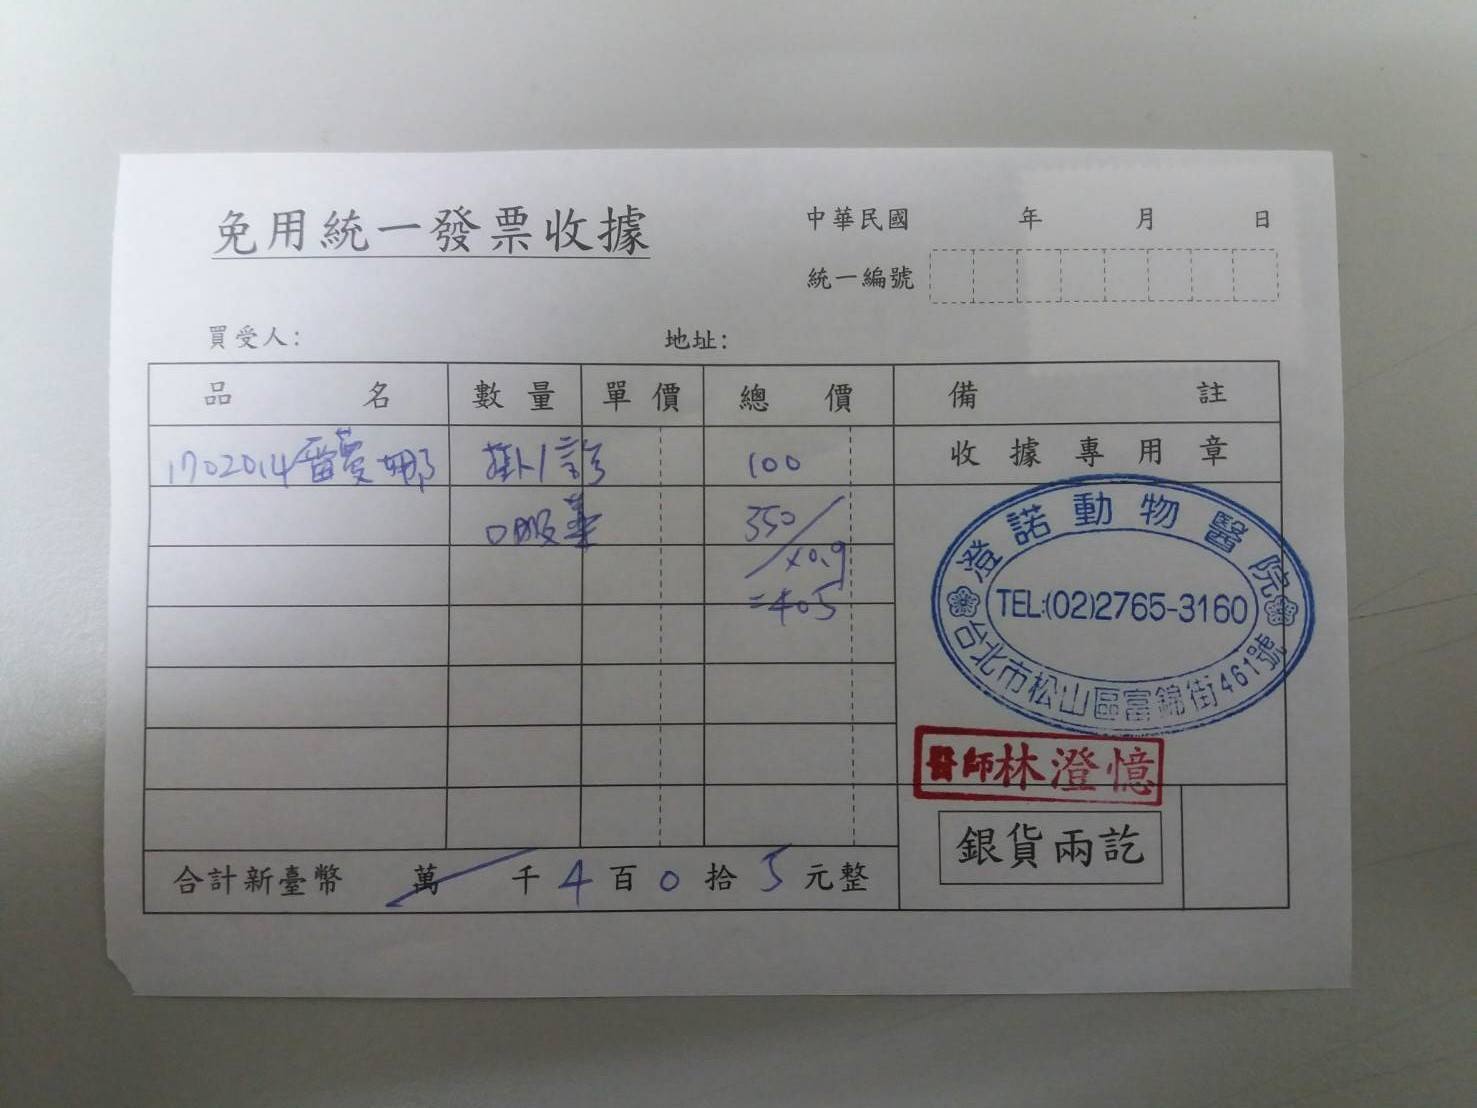 免用統一發票收據
中華民國 年 月 日
統一編號
買受人: 地址:
品名 數量 單價 總價 備註
1702014雷曼娜 掛診 100 收據專用章
口服藥 350
×0.9
=405
澄諾動物醫院
TEL:(02)2765-3160
台北市松山區富錦街461號
醫師林澄憶
銀貨兩訖
合計新臺幣 萬 千 4 百 0 拾 5 元整